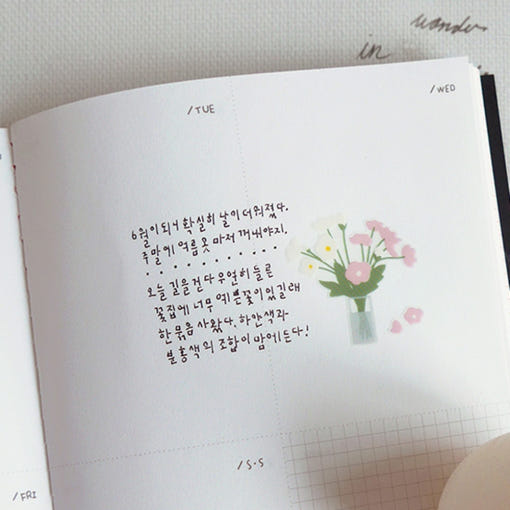 wander
in
/TUE
/WED
6월이 되니 확실히 날이 더워졌다.
주말에 여름옷 마저 꺼내야지.
오늘 길을 걷다 우연히 들른
꽃집에 너무 예쁜 꽃이 있길래
한 묶음 사왔다. 하얀색과
분홍색의 조합이 맘에 든다!
/S·S
/FRI